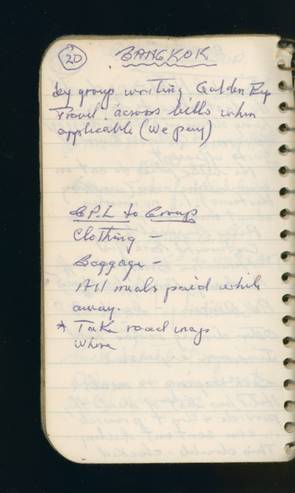 20 BANGKOK
by group writing Golden
Travel across hills when
applicable (we pay)
G.P.L to Group
Clothing -
Baggage -
All meals paid while
away.
* Take road maps